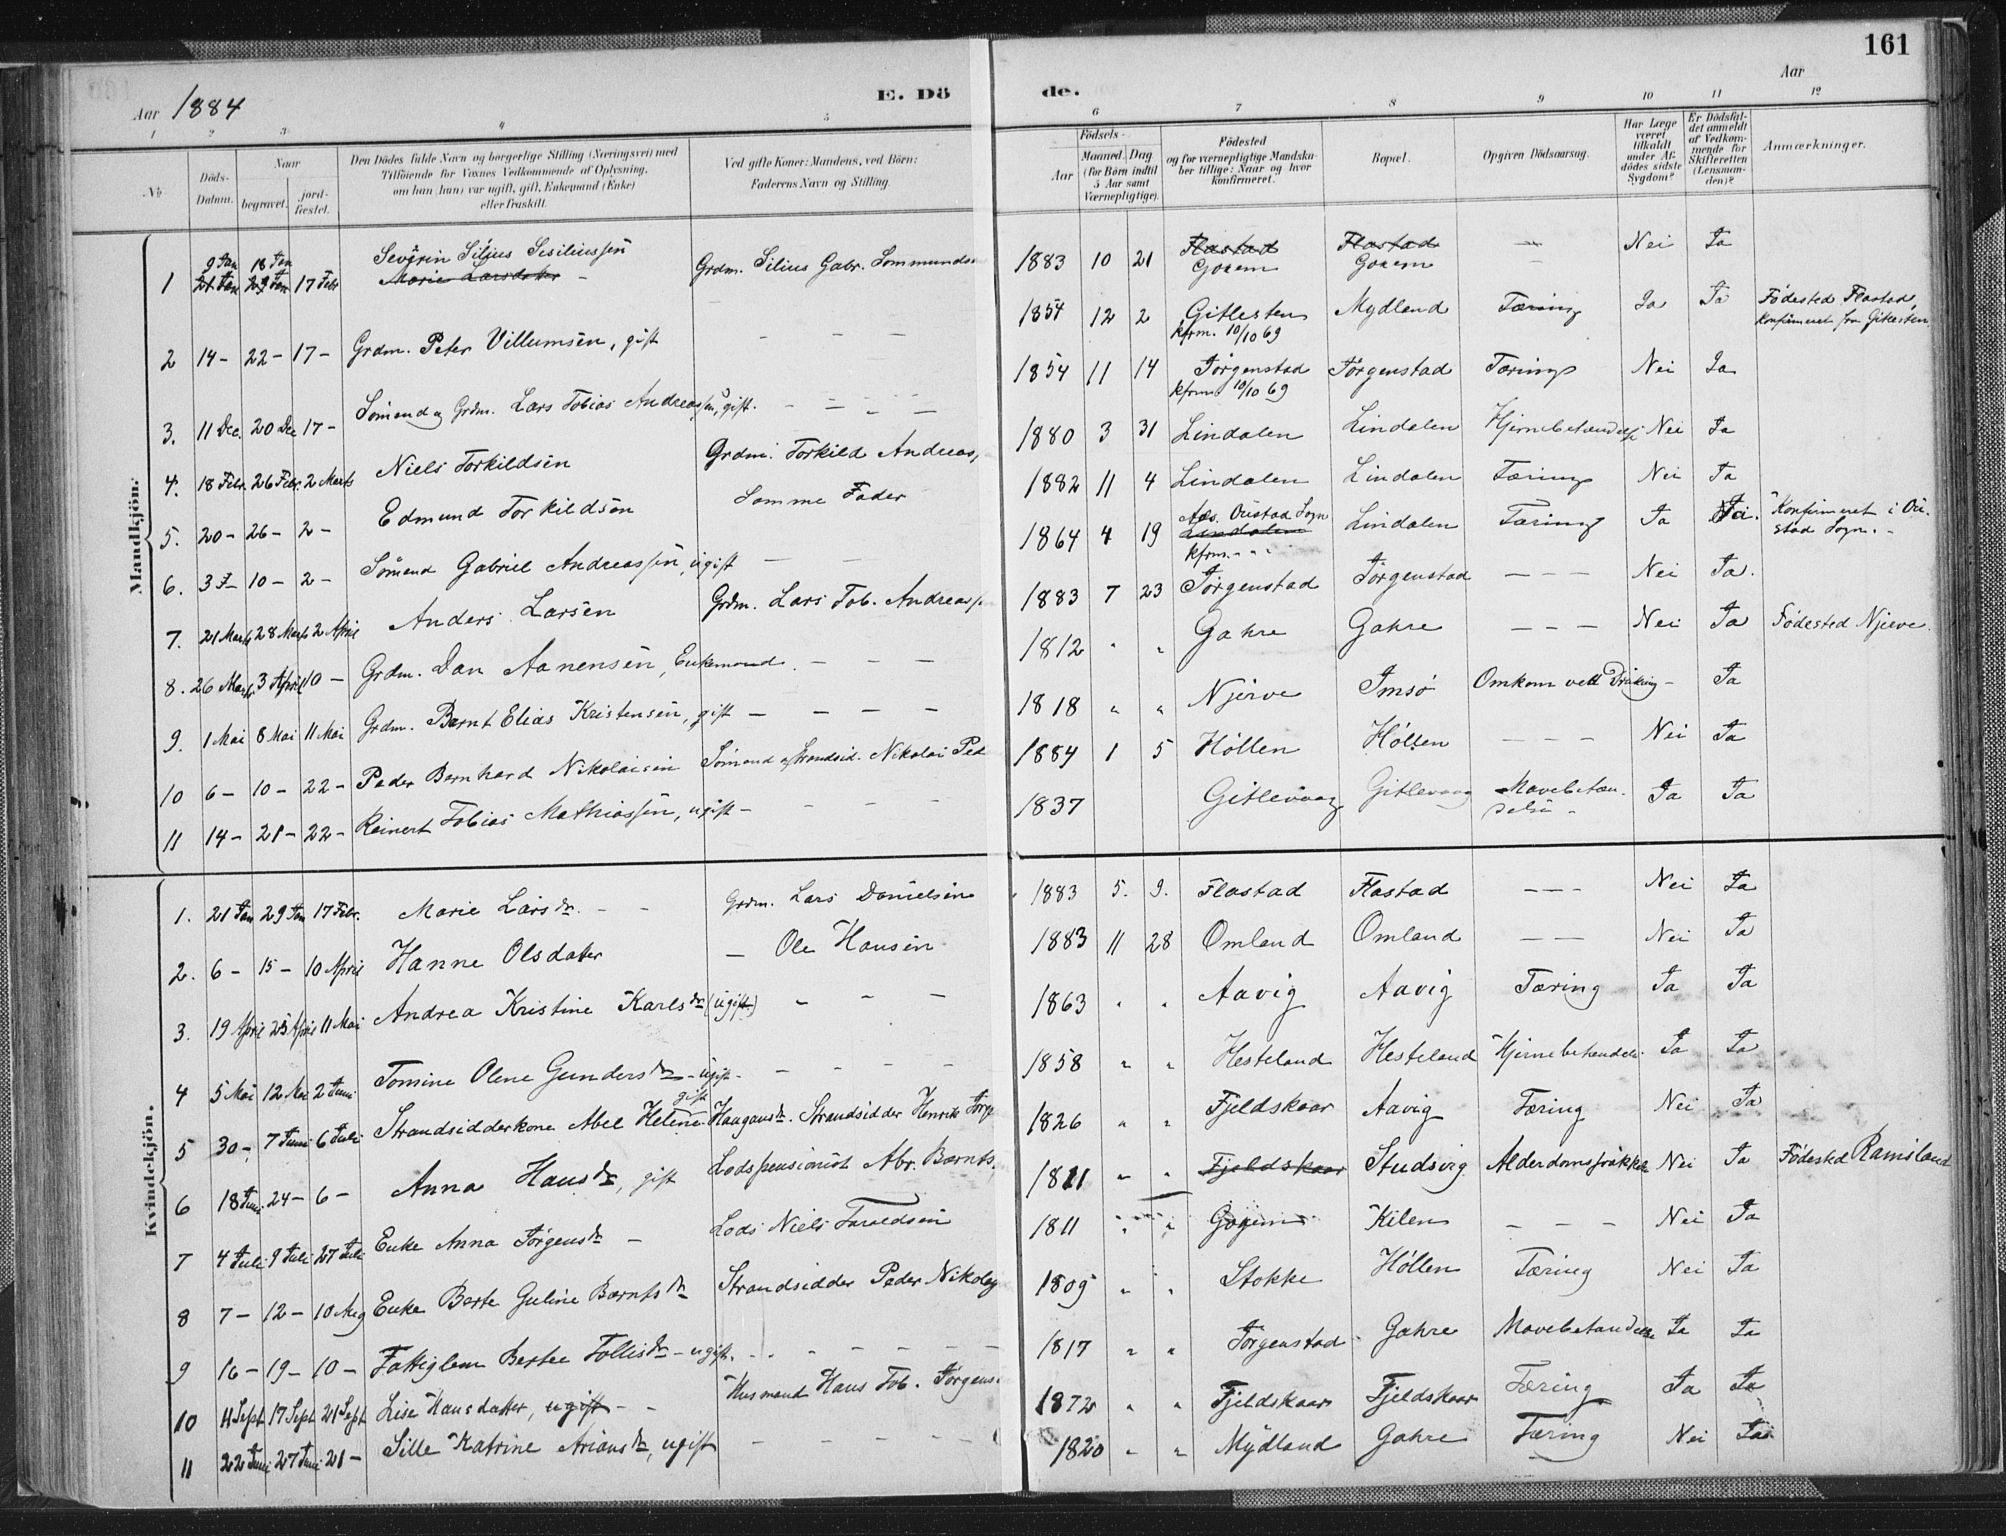 161
Aar 1884
E. Dö
de.
Aar
1 2 3 4 5 6 7 8 9 10 11 12
No.
Döds-Datum.
Naar
begravet.
jord-fæstet.
Den Dödes fulde Navn og borgerlige Stilling (Næringsvei) med
Tilföiende for Voxnes Vedkommende af Oplysning,
om han (hun) var ugift, gift, Enkemand (Enke)
eller fraskilt.
Ved gifte Koner: Mandens, ved Börn:
Faderens Navn og Stilling.
Födsels-
Aar
Maaned. Dag
(for Börn indtil
5 Aar samt
Værnepligtige).
Födested
og for værnepligtige Mandska-
ber tillige: Naar og hvor
konfirmeret.
Bopæl.
Opgiven Dödsaarsag.
Har Læge
været
tilkaldt
under Af-
dödes sidste
Sygdom?
Er Dödsfal-
det anmeldt
af Vedkom-
mende for
Skifteretten
(Lensman-
den)?
Anmærkninger.
Mandkjön.
1 9 Jan 18 Jan Severin Silius Sisiliussen
21 Jan 29 Jan 17 Febr Marie Larsdatter – Grdm. Silius Gabr. Sommunds 1883 10 21 Flastad Gozem Flastad Gozem — Nei Ja
2 14 – 22 – 17 – Grdm. Peter Villumsen, gift – – – 1854 12 2 Gitlesten Mydland Tæring Ja Ja Födested Flastad,
kfrm. 10/10 69 konfirmeret fra Gitlesten
3. 11 Dec. 20 Dec 17 – Sömand og Grdm. Lars Tobias Andreassen, gift. – – – – 1854 11 14 Jörgenstad Jörgenstad Tæring Nei Ja
kfrm. 10/10 69
4. 18 Febr. 26 Febr. 2 Marts Niels Torkildsen Grdm. Torkild Andreas 1880 3 31 Lindalen Lindalen Hjernebetændelse Nei Ja
5. 20 – 26 – 2 – Edmund Torkildsen Samme Fader 1882 11 4 Lindalen Lindalen Tæring Nei Ja
6. 3 – 10 – 2 – Sömand Gabriel Andreassen, ugift – – 1864 4 19 Aas. Öustad Sogn Lindalen Lindalen Tæring Ja Ja. Konfirmeret i Öu-
kfrm. – " – stad Sogn. –
7. 21 Marts 28 Marts 2 April Anders Larsen Grdm. Lars Tob. Andreas 1883 7 23 Jörgenstad Jörgenstad – – – Nei Ja.
8. 26 Marts 3 April 10 – Grdm. Dan Aanensen, Enkemand. – – – 1812 " " Gahre Gahre – – – Nei Ja Födested Njerve.
9. 1 Mai 8 Mai 11 Mai Grdm. Bernt Elias Kristensen, gift – – – – 1818 " " Njerve Imsö Omkom ved Drukning – Ja
10 6 – 10 – 22 – Peder Bernhard Nikolaisen Sömand og Strandsid. Nikolai Ped 1884 1 5 Höllen Höllen – – – Nei Ja
11 14 – 21 – 22 – Reinert Tobias Mathiassen, ugift – – – – 1837 Gitlevaag Gitlevaag Mavebetæn- Ja Ja
delse –
Kvindekjön.
1. 21 Jan 29 Jan 17 Febr. Marie Larsdr. – – Grdm. Lars Danielsen 1883 5. 9. Flastad Flastad – – – Nei Ja
2. 6 – 15 – 10 April Hanne Olsdatter – Ole Hansen 1883 11 28 Omland Omland – – Nei Ja
3. 19 April 25 April 11 Mai Andrea Kristine Karlsdr (ugift) – – – 1863 " " Aavig Aavig Tæring Ja Ja
4 5 Mai 12 Mai 2 Juni Tomine Olene Gundersdr – ugift – – – – – 1858 " " Hesteland Hesteland Hjernebetændelse. Ja Ja
5 30 – 7 Juni 6 Juli Strandsidderkone Abel Helene gift Haagansdr. Strandsidder Henrik Jörg 1826 " " Fjeldskaar Aavig Tæring Nei Ja
6 18 Juni 24 – 6 – Anna Hansdr, gift Lodspensionist Abr. Bærnts 1811 " " Fjeldskaar Studsvig Alderdomssvækkelse Nei Ja Födested Ramsland
7 4 Juli 9 Juli 27 Juli Enke Anna Jörgensdr – Lods Niels Taraldsen 1811 " " Kilen – – – Nei Ja
8 7 – 12 – 10 Aug Enke Berte Guline Bærntsdr Strandsidder Peder Nikolay 1809 " " Stokke Höllen Tæring Nei Ja
9 16 – 19 – 10 – Fattiglem Bertee Tollisdr – ugift. – – – – – – 1817 " " Jörgenstad Gahre Mavebetændelse Ja Ja
10 11 Sept 17 Sept 21 Sept Lise Hansdatter, ugift – – Husmand Hans Tob. Jörgens 1872 " " Fjeldskaar Fjeldskaar Tæring Ja Ja
11 22 Juni 27 Juni 21 – Sille Katrine Ariansdr, ugift – – – – – 1820 " " Mydland Gahre Tæring Nei Ja